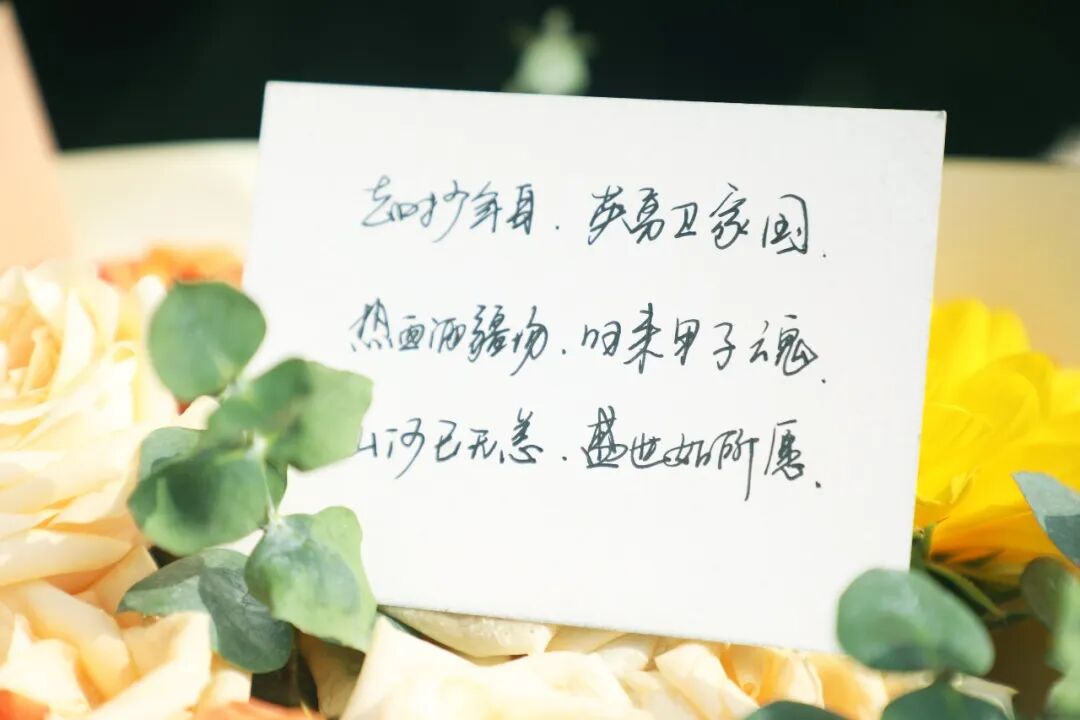 去时少年身.英勇卫家国.
热血洒疆场.归来甲子魂.
山河已无恙.盛世如所愿.